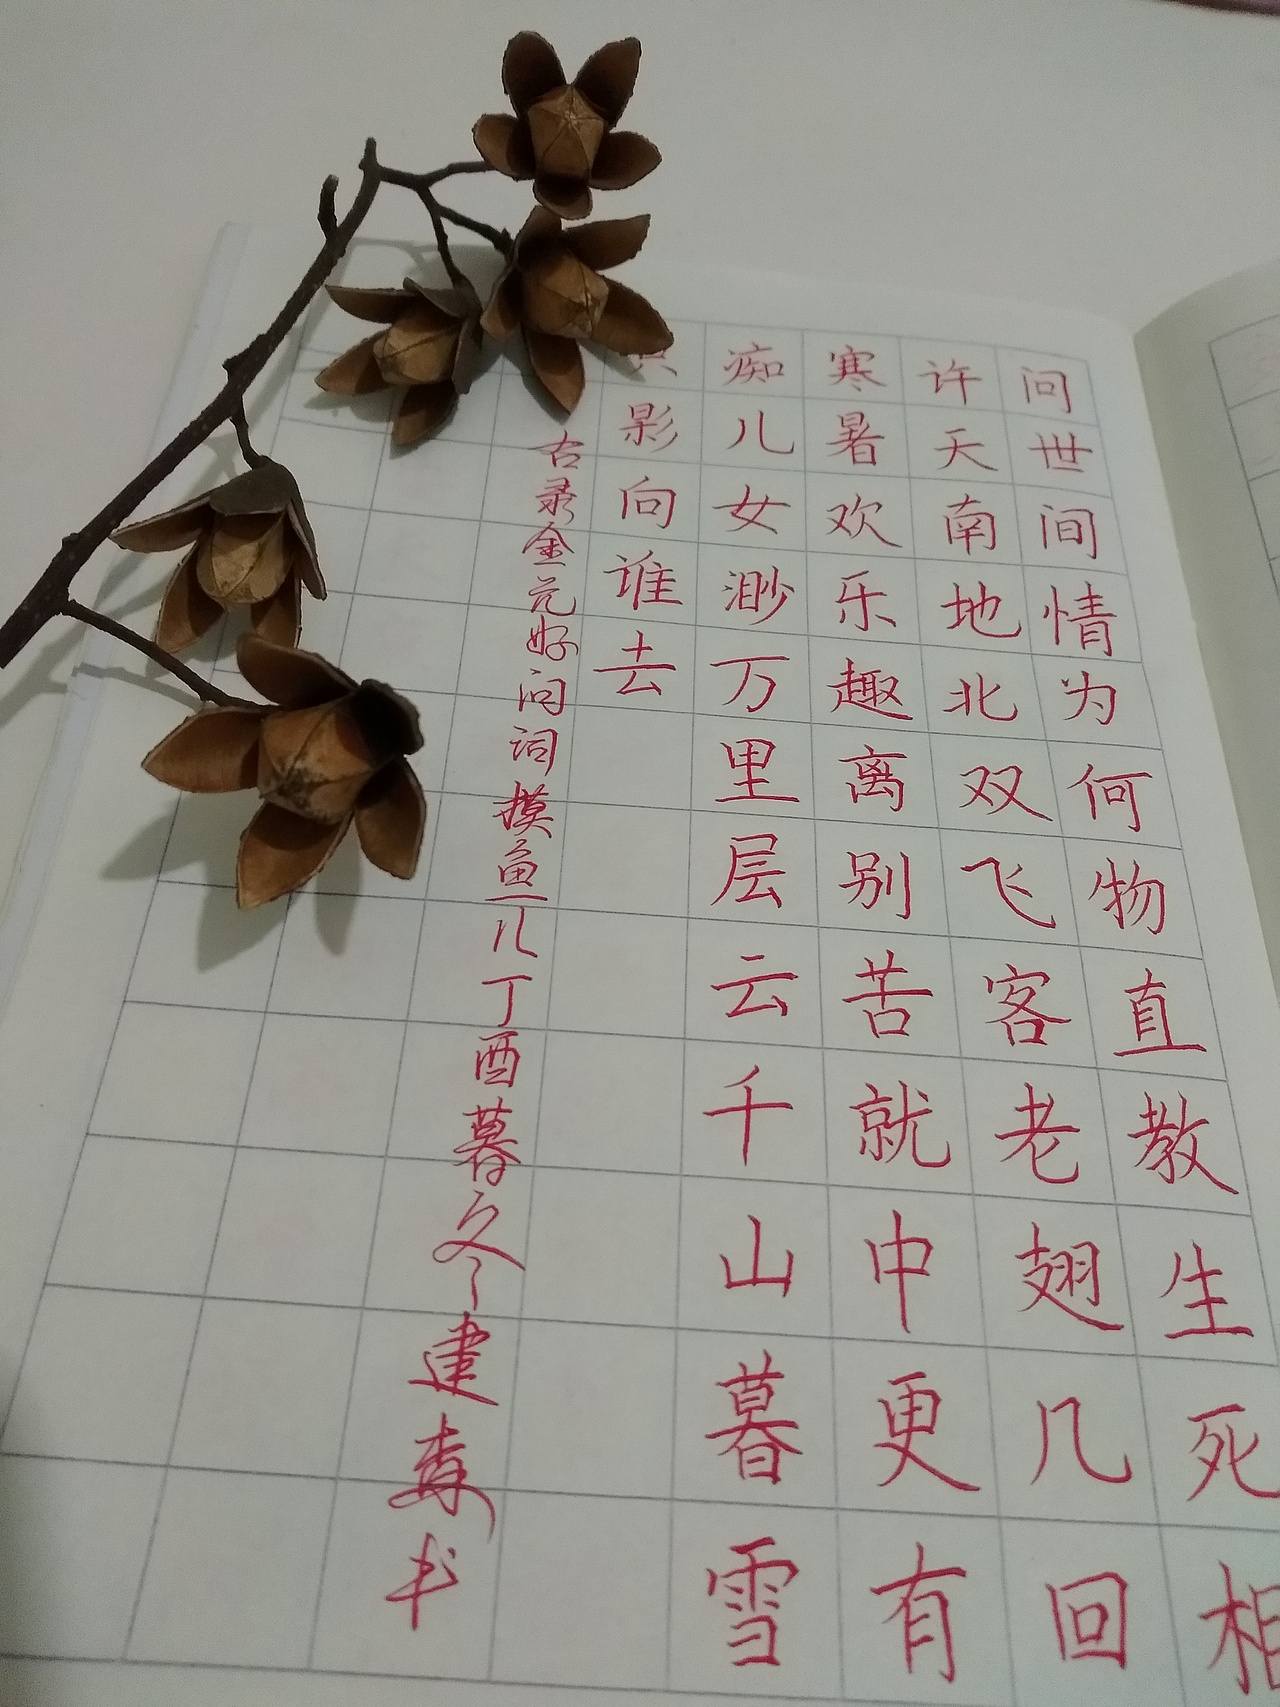 问世间情为何物直教生死相
许天南地北双飞客老翅几回
寒暑欢乐趣离别苦就中更有
痴儿女渺万里层云千山暮雪
只影向谁去
右录金元好问词摸鱼儿丁酉暮久建森书